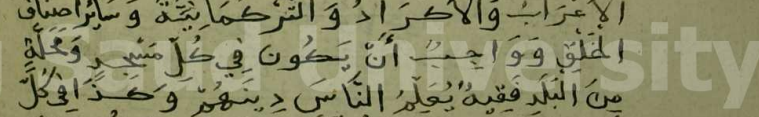 الاعْرَابُ وَالاكْرَادُ وَالتُّرْكُمَانِيَّةُ وَسَائِرُ اصْنَافِ
الْخَلْقِ وَوَاجِبٌ أَنْ يَكُونَ فِي كُلِّ مَسْجِدٍ وَمَحَلَّةٍ
مِنَ الْبَلَدِ فَقِيهٌ يُعَلِّمُ النَّاسَ دِينَهُمْ وَكَذَا فِي كُلِّ
University